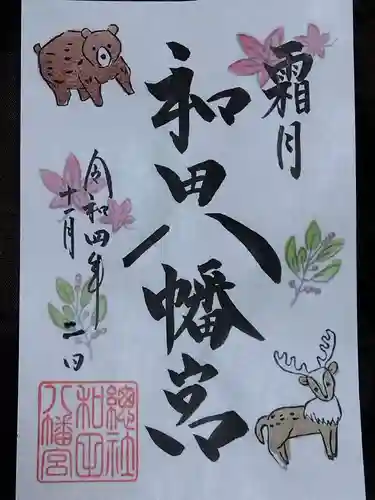 霜月
和田八幡宮
令和四年
十一月
三日
總社
和田
八幡宮